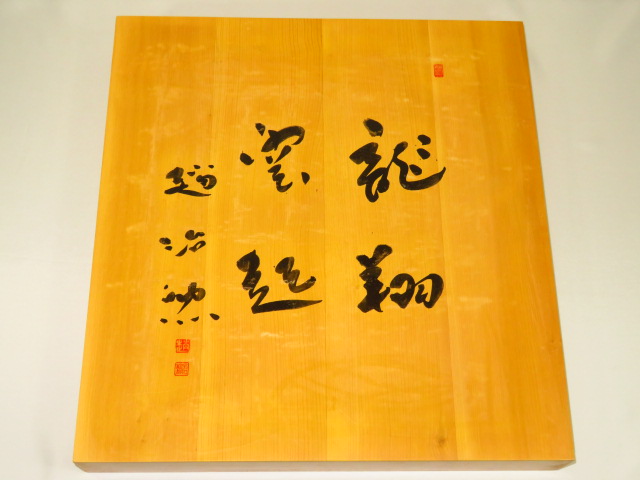 龍翔
雲起
趙治勲